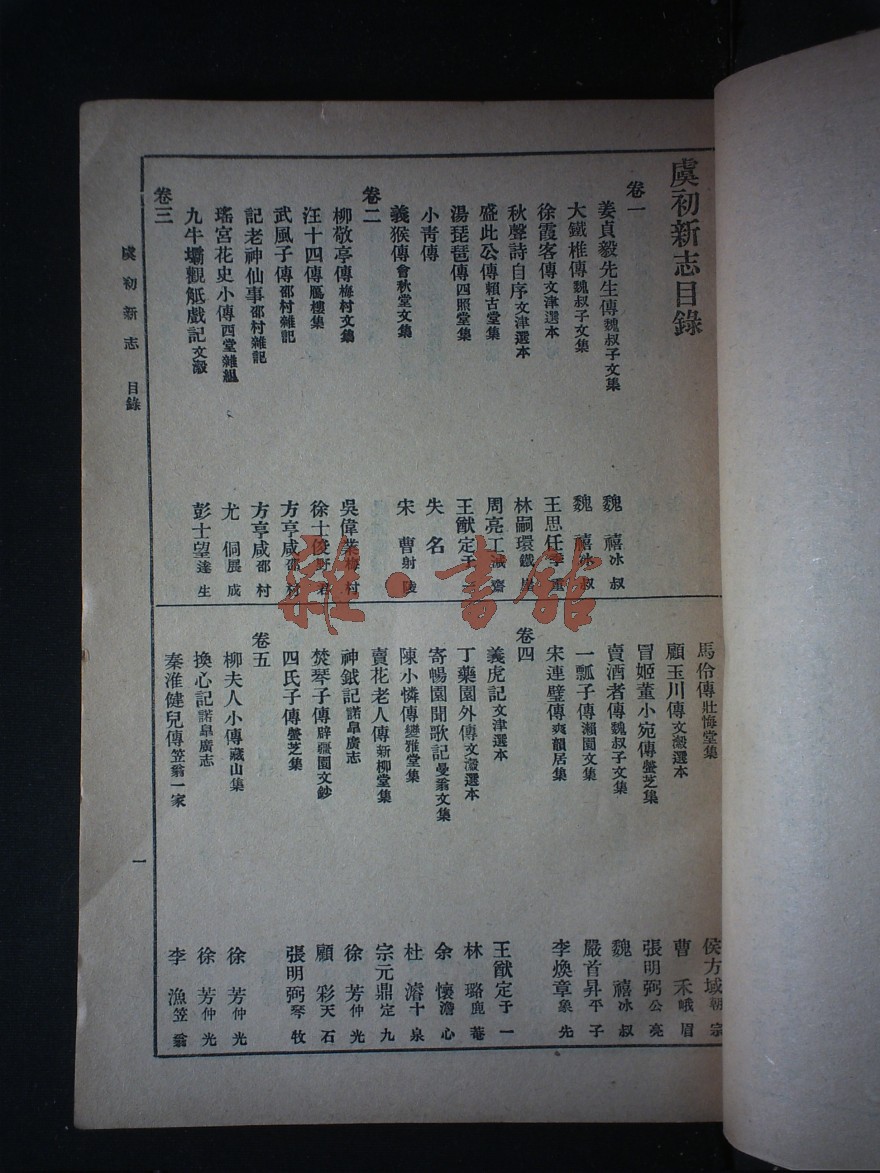 虞初新志目錄
卷一
姜貞毅先生傳魏叔子文集 魏禧冰叔
大鐵椎傳魏叔子文集 魏禧冰叔
徐霞客傳文津選本 王思任季重
秋聲詩自序文津選本 林嗣環鐵崖
盛此公傳賴古堂集 周亮工減齋
湯琵琶傳四照堂集 王猷定于一
小青傳 失名
義猴傳會秋堂文集 宋曹射陵
卷二
柳敬亭傳梅村文集 吳偉業梅村
汪十四傳鴈樓集 徐士俊野君
武風子傳邵村雜記 方亨咸邵村
記老神仙事邵村雜記 方亨咸邵村
瑤宮花史小傳西堂雜組 尤侗展成
九牛壩觀觝戲記文瀫 彭士望達生
卷三
馬伶傳壯悔堂集 侯方域朝宗
顧玉川傳文瀫選本 曹禾峨眉
冒姬董小宛傳螢芝集 張明弼公亮
賣酒者傳魏叔子文集 魏禧冰叔
一瓢子傳瀨園文集 嚴首昇平子
宋連璧傳爽韻居集 李煥章象先
卷四
義虎記文津選本 王猷定于一
丁藥園外傳文瀫選本 林璐鹿菴
寄暢園聞歌記曼翁文集 余懷澹心
陳小憐傳變雅堂集 杜濬十泉
賣花老人傳新柳堂集 宗元鼎定九
神鉞記諾臯廣志 徐芳仲光
焚琴子傳辟疆園文鈔 顧彩天石
四氏子傳螢芝集 張明弼琴牧
卷五
柳夫人小傳藏山集 徐芳仲光
換心記諾臯廣志 徐芳仲光
秦淮健兒傳笠翁一家 李漁笠翁
虞初新志 目錄
一
雜·書館